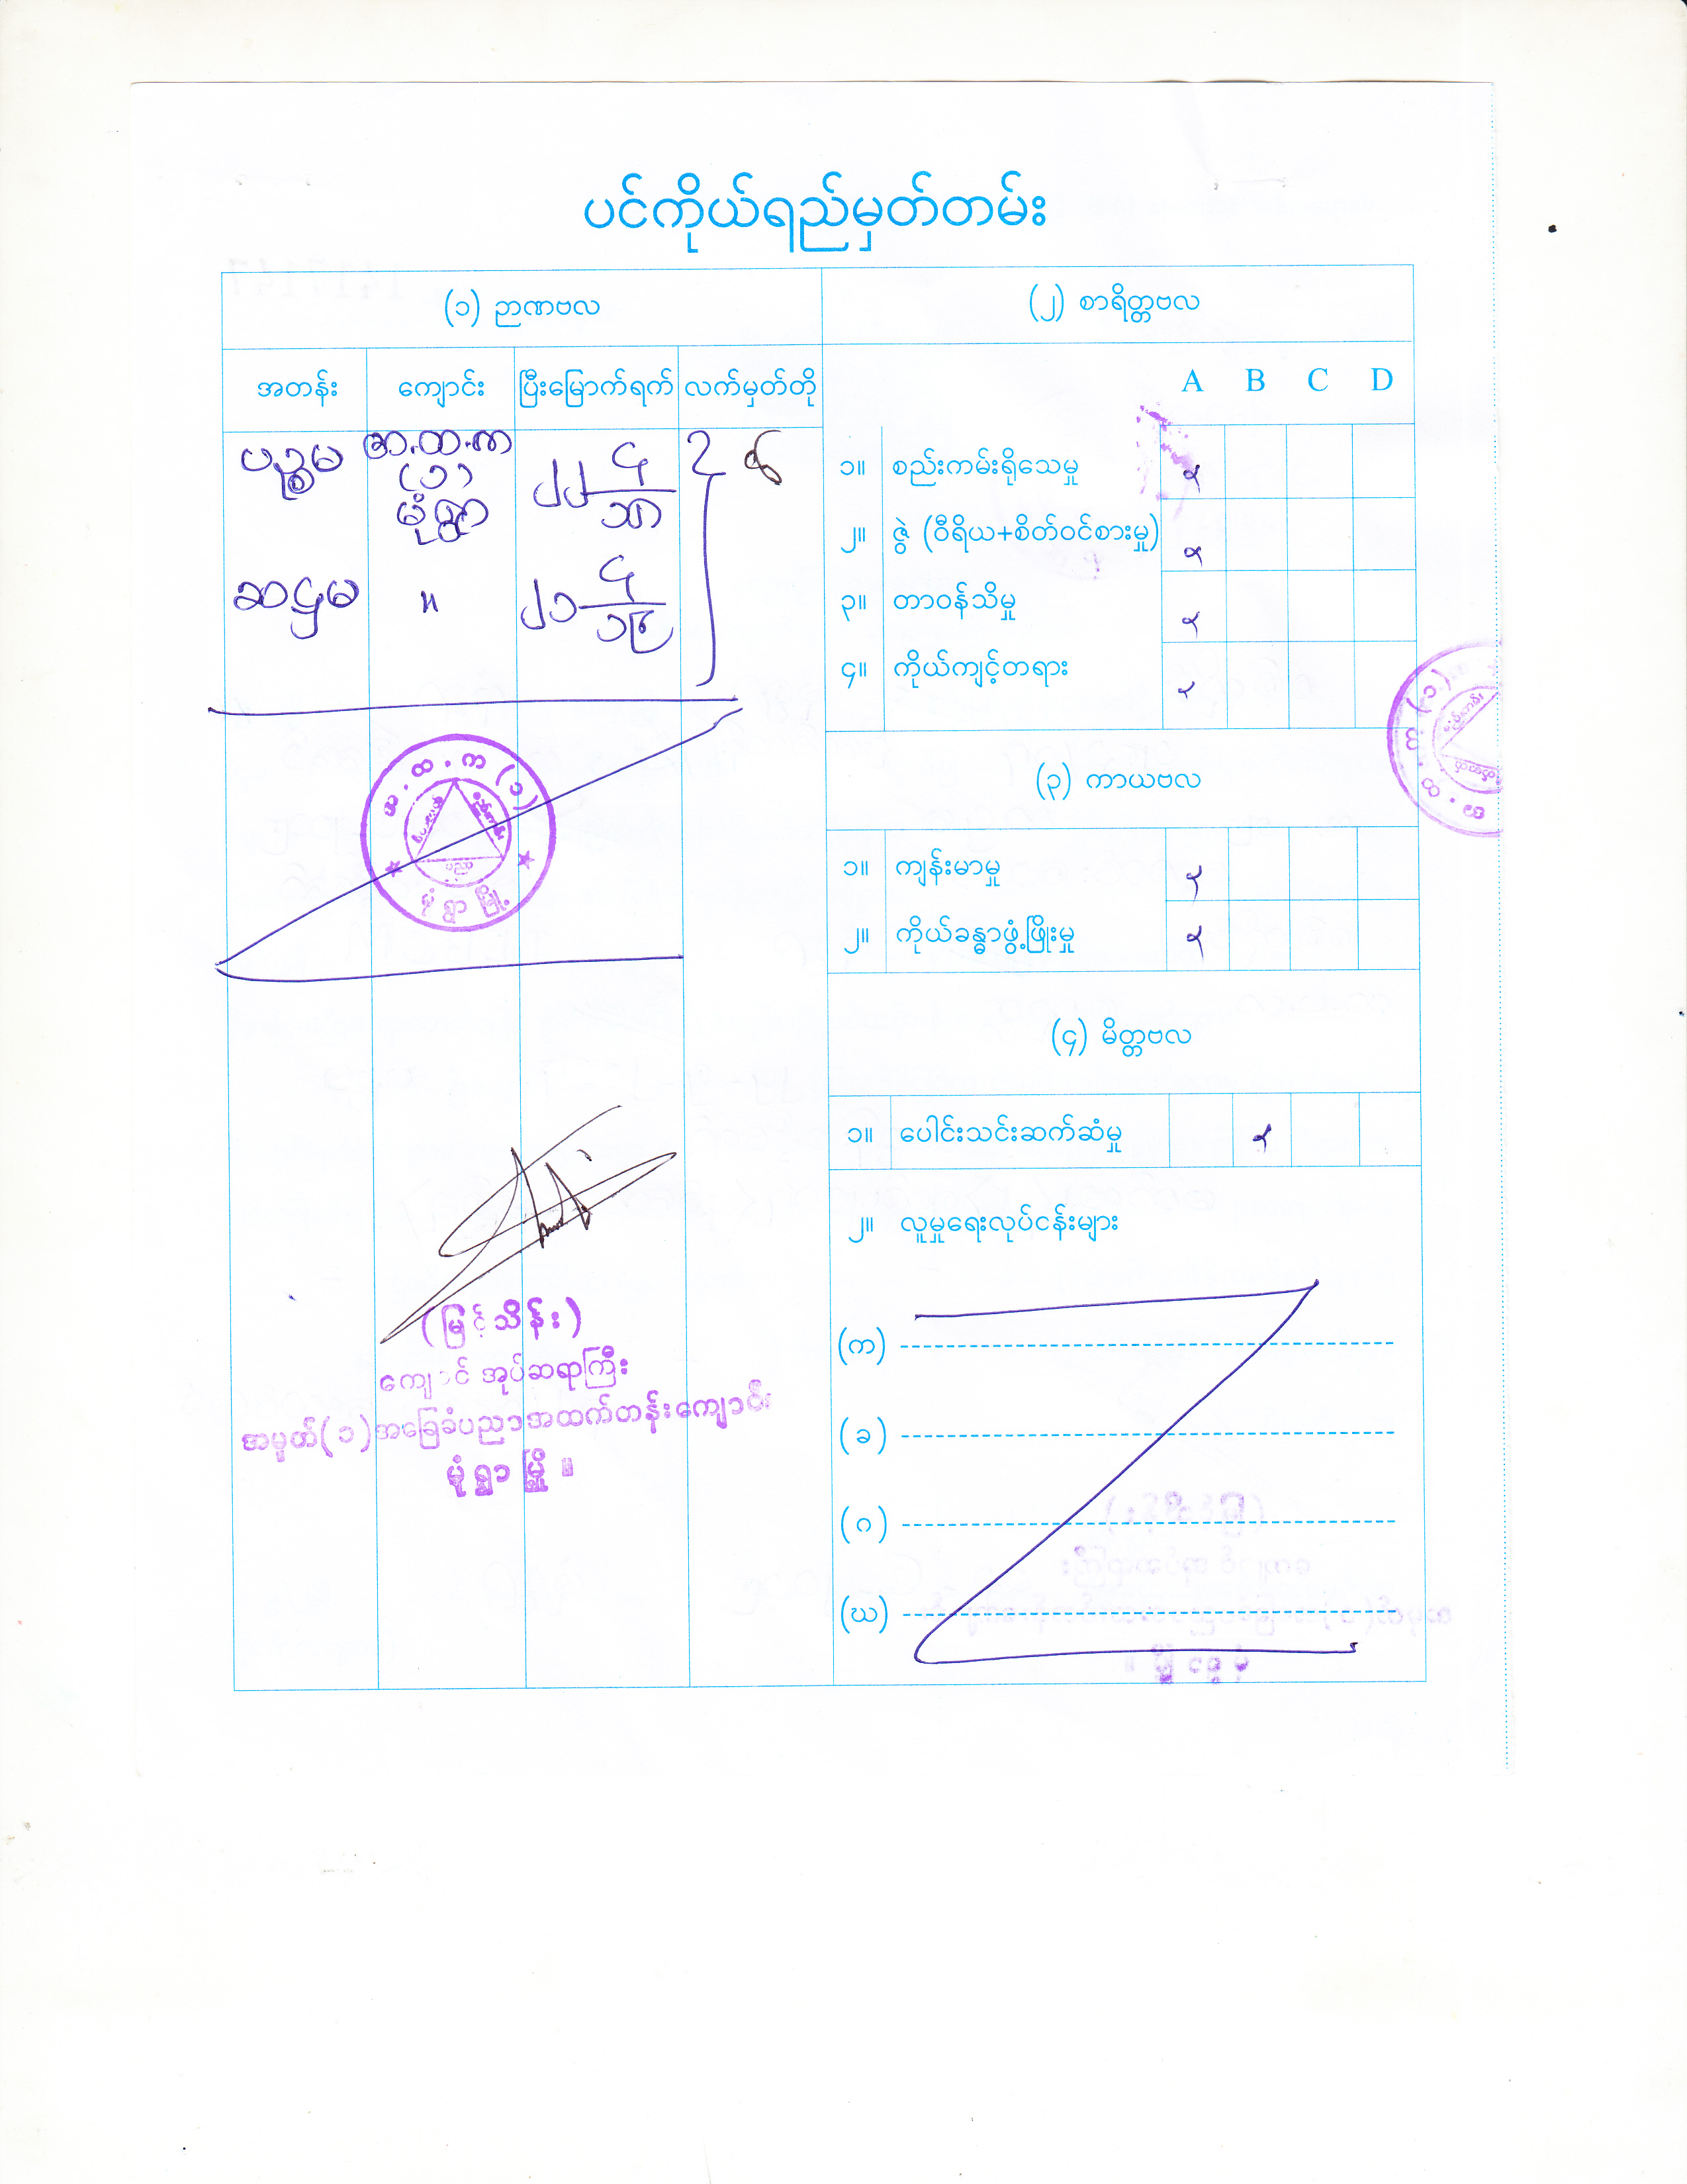 ပင်ကိုယ်ရည်မှတ်တမ်း
(၁) ဉာဏဗလ
အတန်း ကျောင်း ပြီးမြောက်ရက် လက်မှတ်တို
ပဉ္စမ အ.ထ.က
(၁)
မုံရွာ
ဆဋ္ဌမ "
အ.ထ.က (၁)
မုံရွာမြို့
ပညာ
(မြင့်သိန်း)
ကျောင်းအုပ်ဆရာကြီး
အမှတ်(၁)အခြေခံပညာအထက်တန်းကျောင်း
မုံရွာမြို့။
(၂) စာရိတ္တဗလ
A B C D
၁။ စည်းကမ်းရိုသေမှု
၂။ ဇွဲ (ဝီရိယ+စိတ်ဝင်စားမှု)
၃။ တာဝန်သိမှု
၄။ ကိုယ်ကျင့်တရား
(၃) ကာယဗလ
၁။ ကျန်းမာမှု
၂။ ကိုယ်ခန္ဓာဖွံ့ဖြိုးမှု
(၄) မိတ္တဗလ
၁။ ပေါင်းသင်းဆက်ဆံမှု
၂။ လူမှုရေးလုပ်ငန်းများ
(က)
(ခ)
(ဂ)
(ဃ)